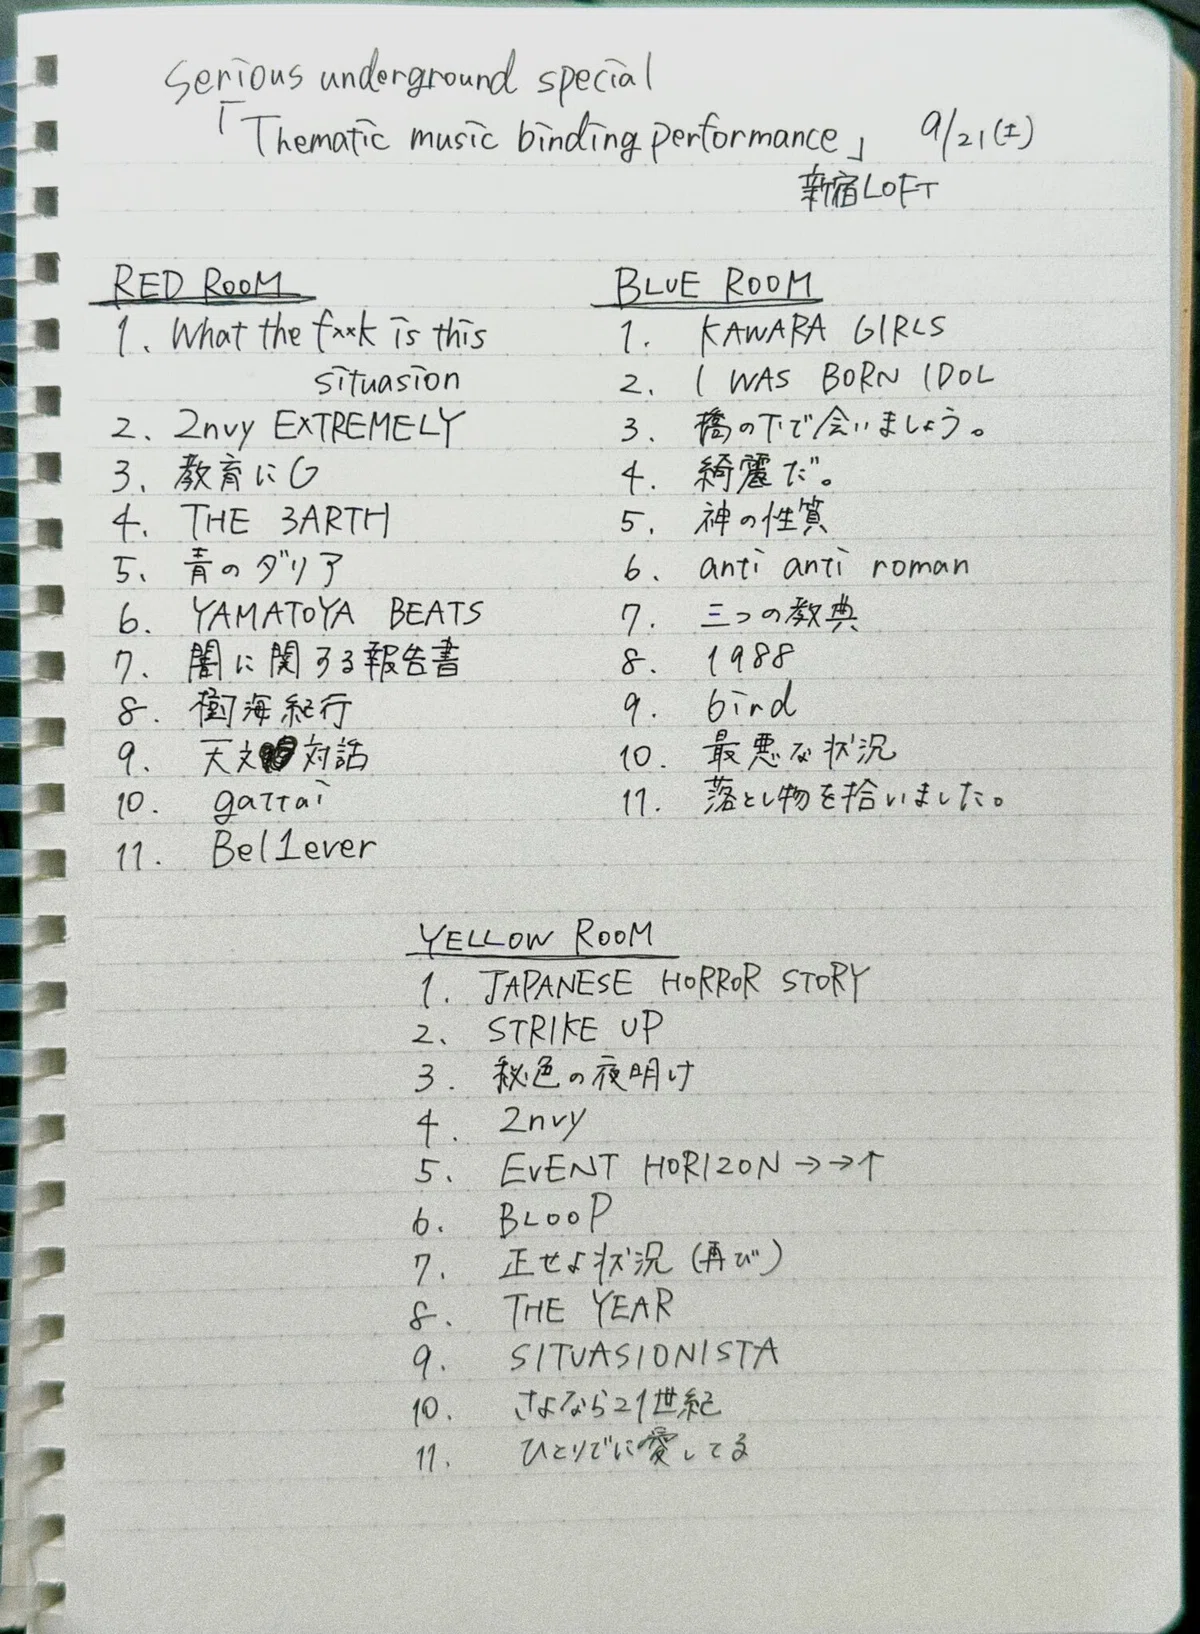 Serious underground special
「Thematic music binding performance」 9/21(土)
新宿LOFT
RED ROOM
1. What the fxxk is this
situasion
2. 2nvy EXTREMELY
3. 教育にG
4. THE 3ARTH
5. 青のダリア
6. YAMATOYA BEATS
7. 闇に関する報告書
8. 樹海紀行
9. 天文対話
10. gattai
11. Bel1ever
BLUE ROOM
1. KAWARA GIRLS
2. I WAS BORN IDOL
3. 橋の下で会いましょう。
4. 綺麗だ。
5. 神の性質
6. anti anti roman
7. 三つの教典
8. 1988
9. bird
10. 最悪な状況
11. 落とし物を拾いました。
YELLOW ROOM
1. JAPANESE HORROR STORY
2. STRIKE UP
3. 秘色の夜明け
4. 2nvy
5. EVENT HORIZON →→↑
6. BLOOP
7. 正せよ状況(再び)
8. THE YEAR
9. SITUASIONISTA
10. さよなら21世紀
11. ひとりでに愛してる